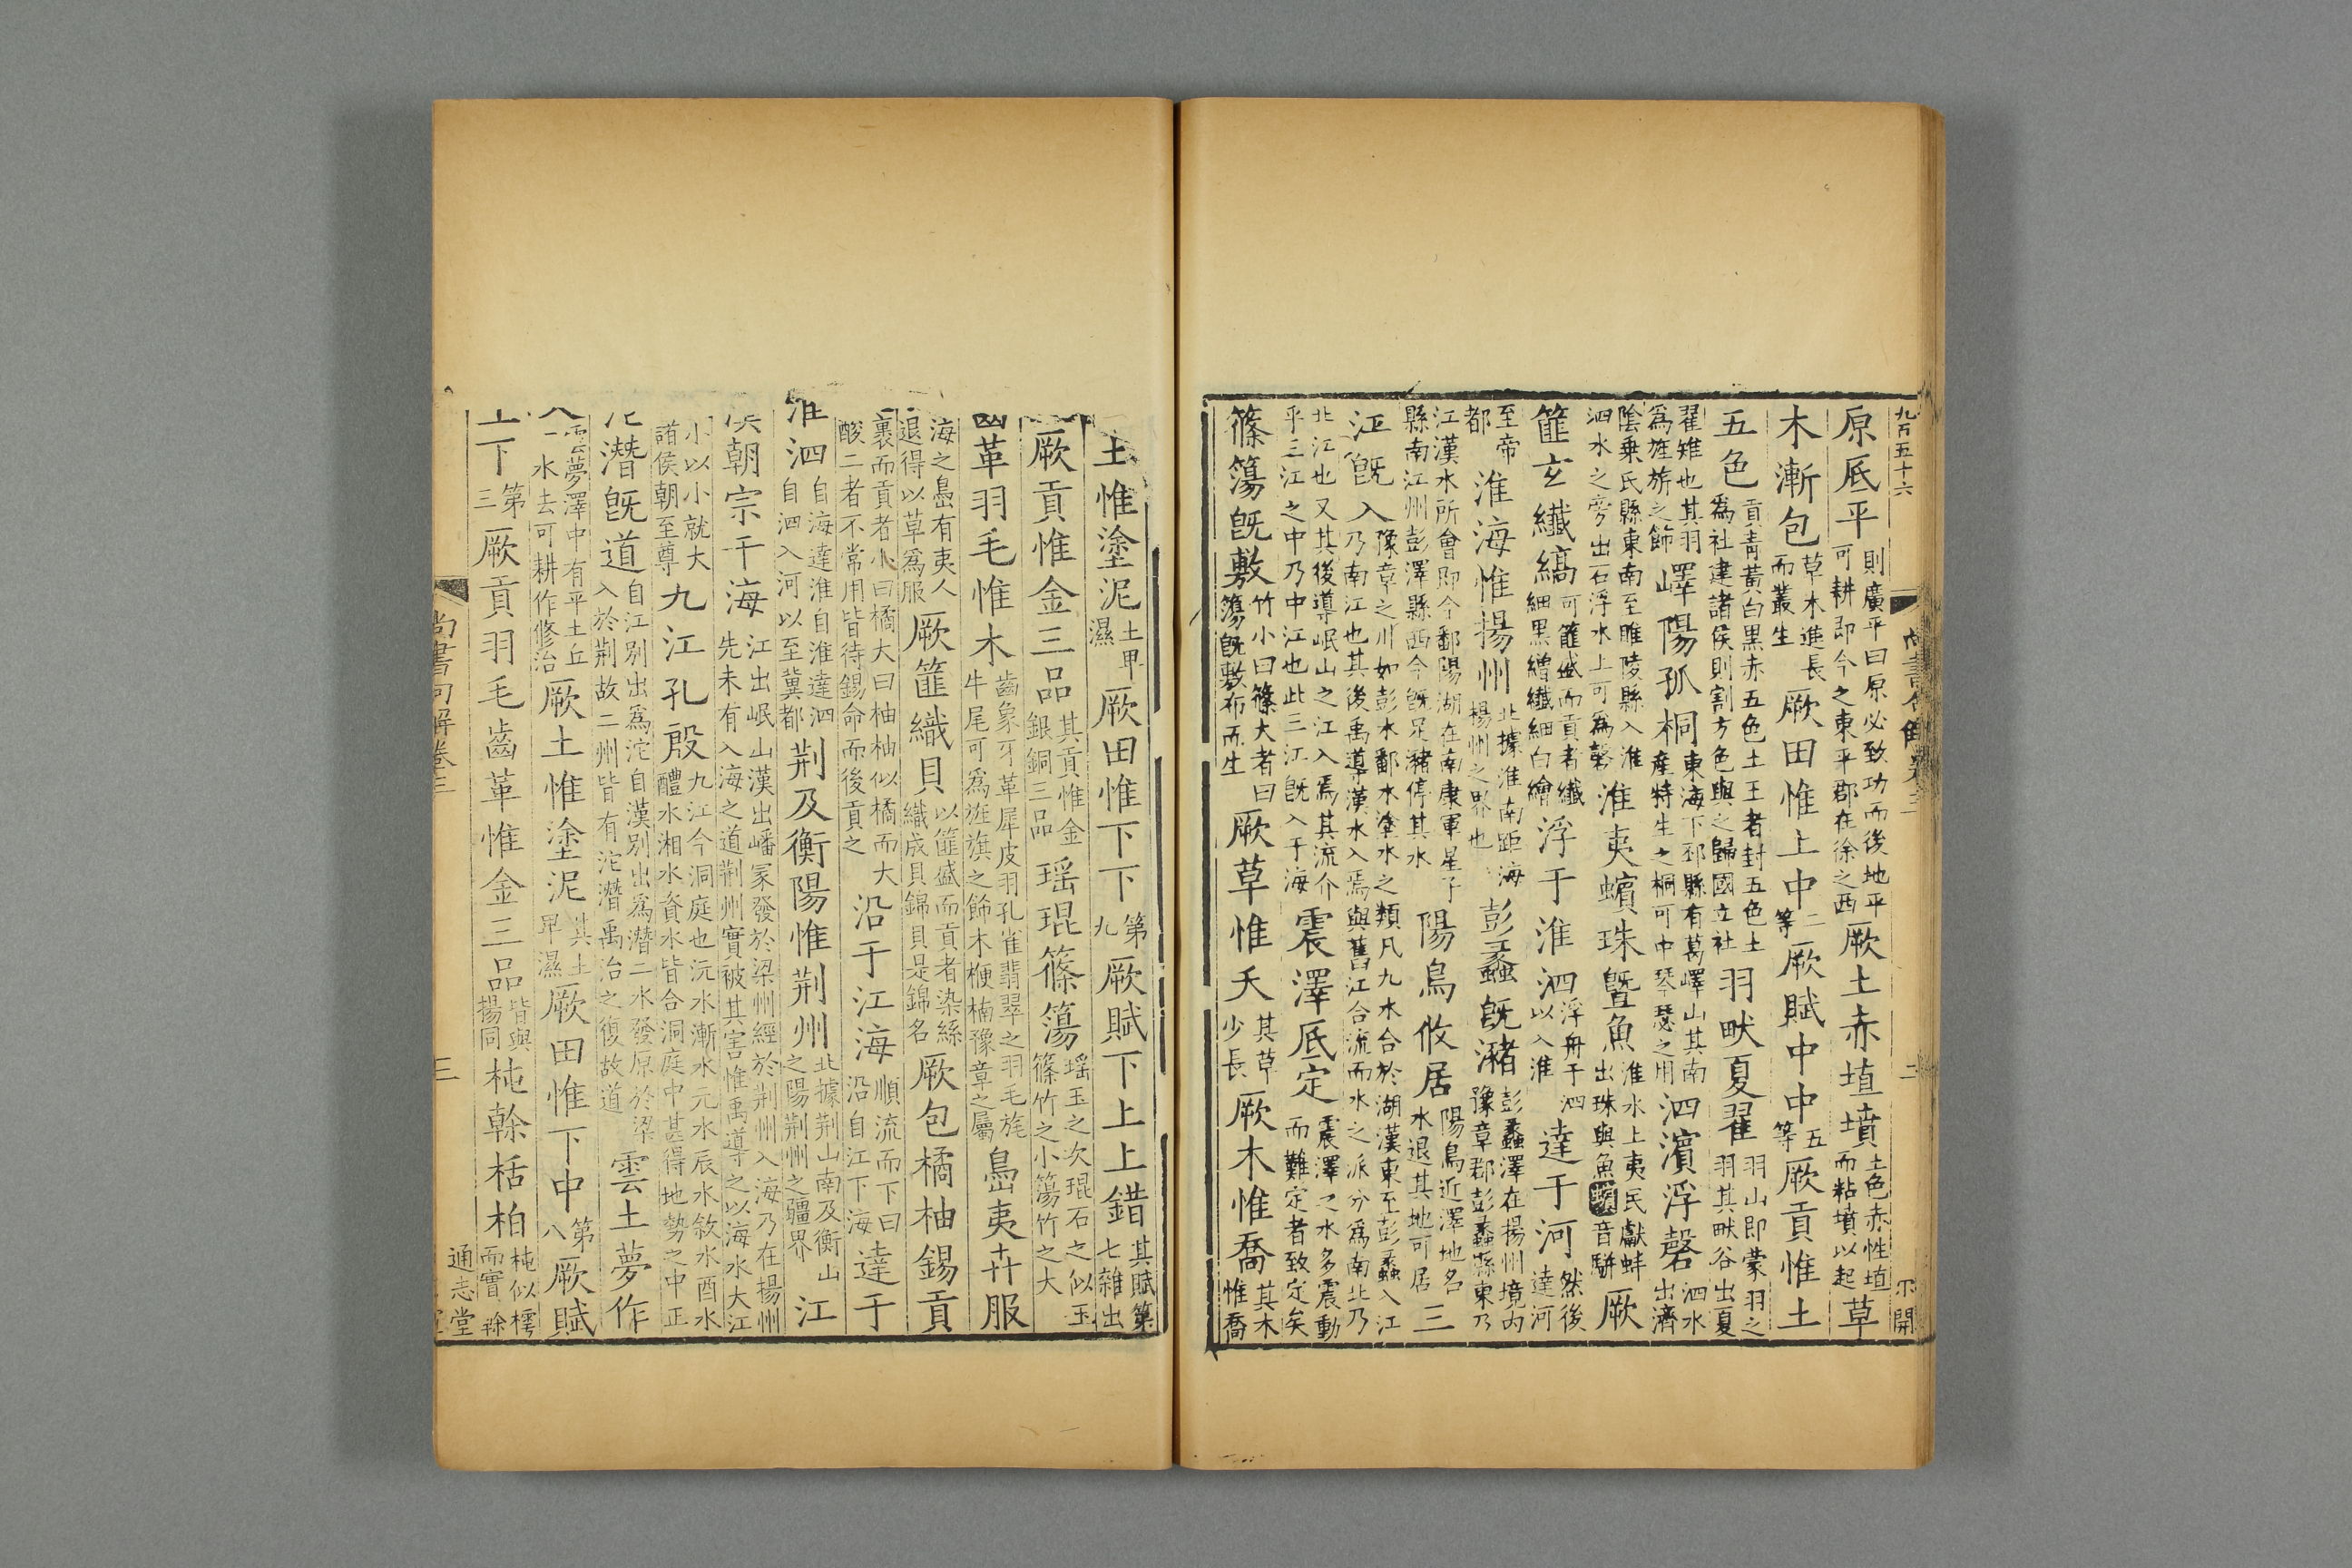 九百五十六
尚書句解卷三 二
原厎平則廣平曰原必致功而後地平可耕即今之東平郡在徐之西厥土赤埴墳土色赤性埴而粘墳以起草
木漸包草木進長而叢生厥田惟上中二等厥賦中中五等厥貢惟土
五色貢青黃白黑赤五色土王者封五色土為社建諸侯則割方色與之歸國立社羽畎夏翟羽山即蒙羽之羽其畎谷出夏
翟雉也其羽為旌旂之飾嶧陽孤桐東海下邳縣有葛嶧山其南產特生之桐可中琴瑟之用泗濱浮磬泗水出濟
陰乗氏縣東南至睢陵縣入淮泗水之旁出石浮水上可為磬淮夷蠙珠曁魚淮水上夷民獻蚌出珠與魚蠙音駢厥
篚玄纖縞可篚盛而貢者纖細黑繒纖細白繒浮于淮泗浮舟于泗以入淮達于河然後達河
至帝都淮海惟揚州北據淮南距海揚州之界也彭蠡旣瀦彭蠡澤在揚州境内豫章郡彭蠡縣東乃
江漢水所會即今鄱陽湖在南康軍星子縣南江州彭澤縣西今旣足瀦停其水陽鳥攸居陽鳥近澤地名水退其地可居三
江旣入豫章之川如彭水鄱水塗水之類凡九水合於湖漢東至彭蠡入江乃南江也其後禹導漢水入焉與舊江合流而水之派分為南北乃
北江也又其後導岷山之江入焉其流介乎三江之中乃中江也此三江旣入于海震澤厎定震澤之水多震動而難定者致定矣
篠簜旣敷竹小曰篠大者曰簜旣敷布而生厥草惟夭其草少長厥木惟喬其木惟喬
土惟塗泥土卑濕厥田惟下下第九厥賦下上上錯其賦第七雜出
厥貢惟金三品其貢惟金銀銅三品瑶琨篠簜瑶玉之次琨石之似玉篠竹之小簜竹之大
齒革羽毛惟木齒象牙革犀皮羽孔雀翡翠之羽毛旄牛尾可為旌旗之飾木楩楠豫章之屬島夷卉服
海之島有夷人退得以草為服厥篚織貝以篚盛而貢者染絲織成貝錦貝是錦名厥包橘柚錫貢
裹而貢者小曰橘大曰柚柚似橘而大酸二者不常用皆待錫命而後貢之沿于江海順流而下曰沿自江下海達于
淮泗自海達淮自淮達泗自泗入河以至冀都荆及衡陽惟荆州北據荆山南及衡山之陽荆州之疆界江
漢朝宗于海江出岷山漢出嶓冢發於梁州經於荆州入海乃在揚州先未有入海之道荆州實被其害惟禹導之以海水大江
小以小就大諸侯朝至尊九江孔殷九江今洞庭也沅水漸水元水辰水敘水酉水醴水湘水資水皆合洞庭中甚得地勢之中正
沱潛旣道自江別出為沱自漢別出為潛二水發原於梁入於荆故二州皆有沱潛禹治之復故道雲土夢作
乂雲夢澤中有平土丘水去可耕作修治厥土惟塗泥其土卑濕厥田惟下中第八厥賦
上下第三厥貢羽毛齒革惟金三品皆與揚同杶榦栝柏杶似樗而實榦
尚書句解卷三 三
通志堂